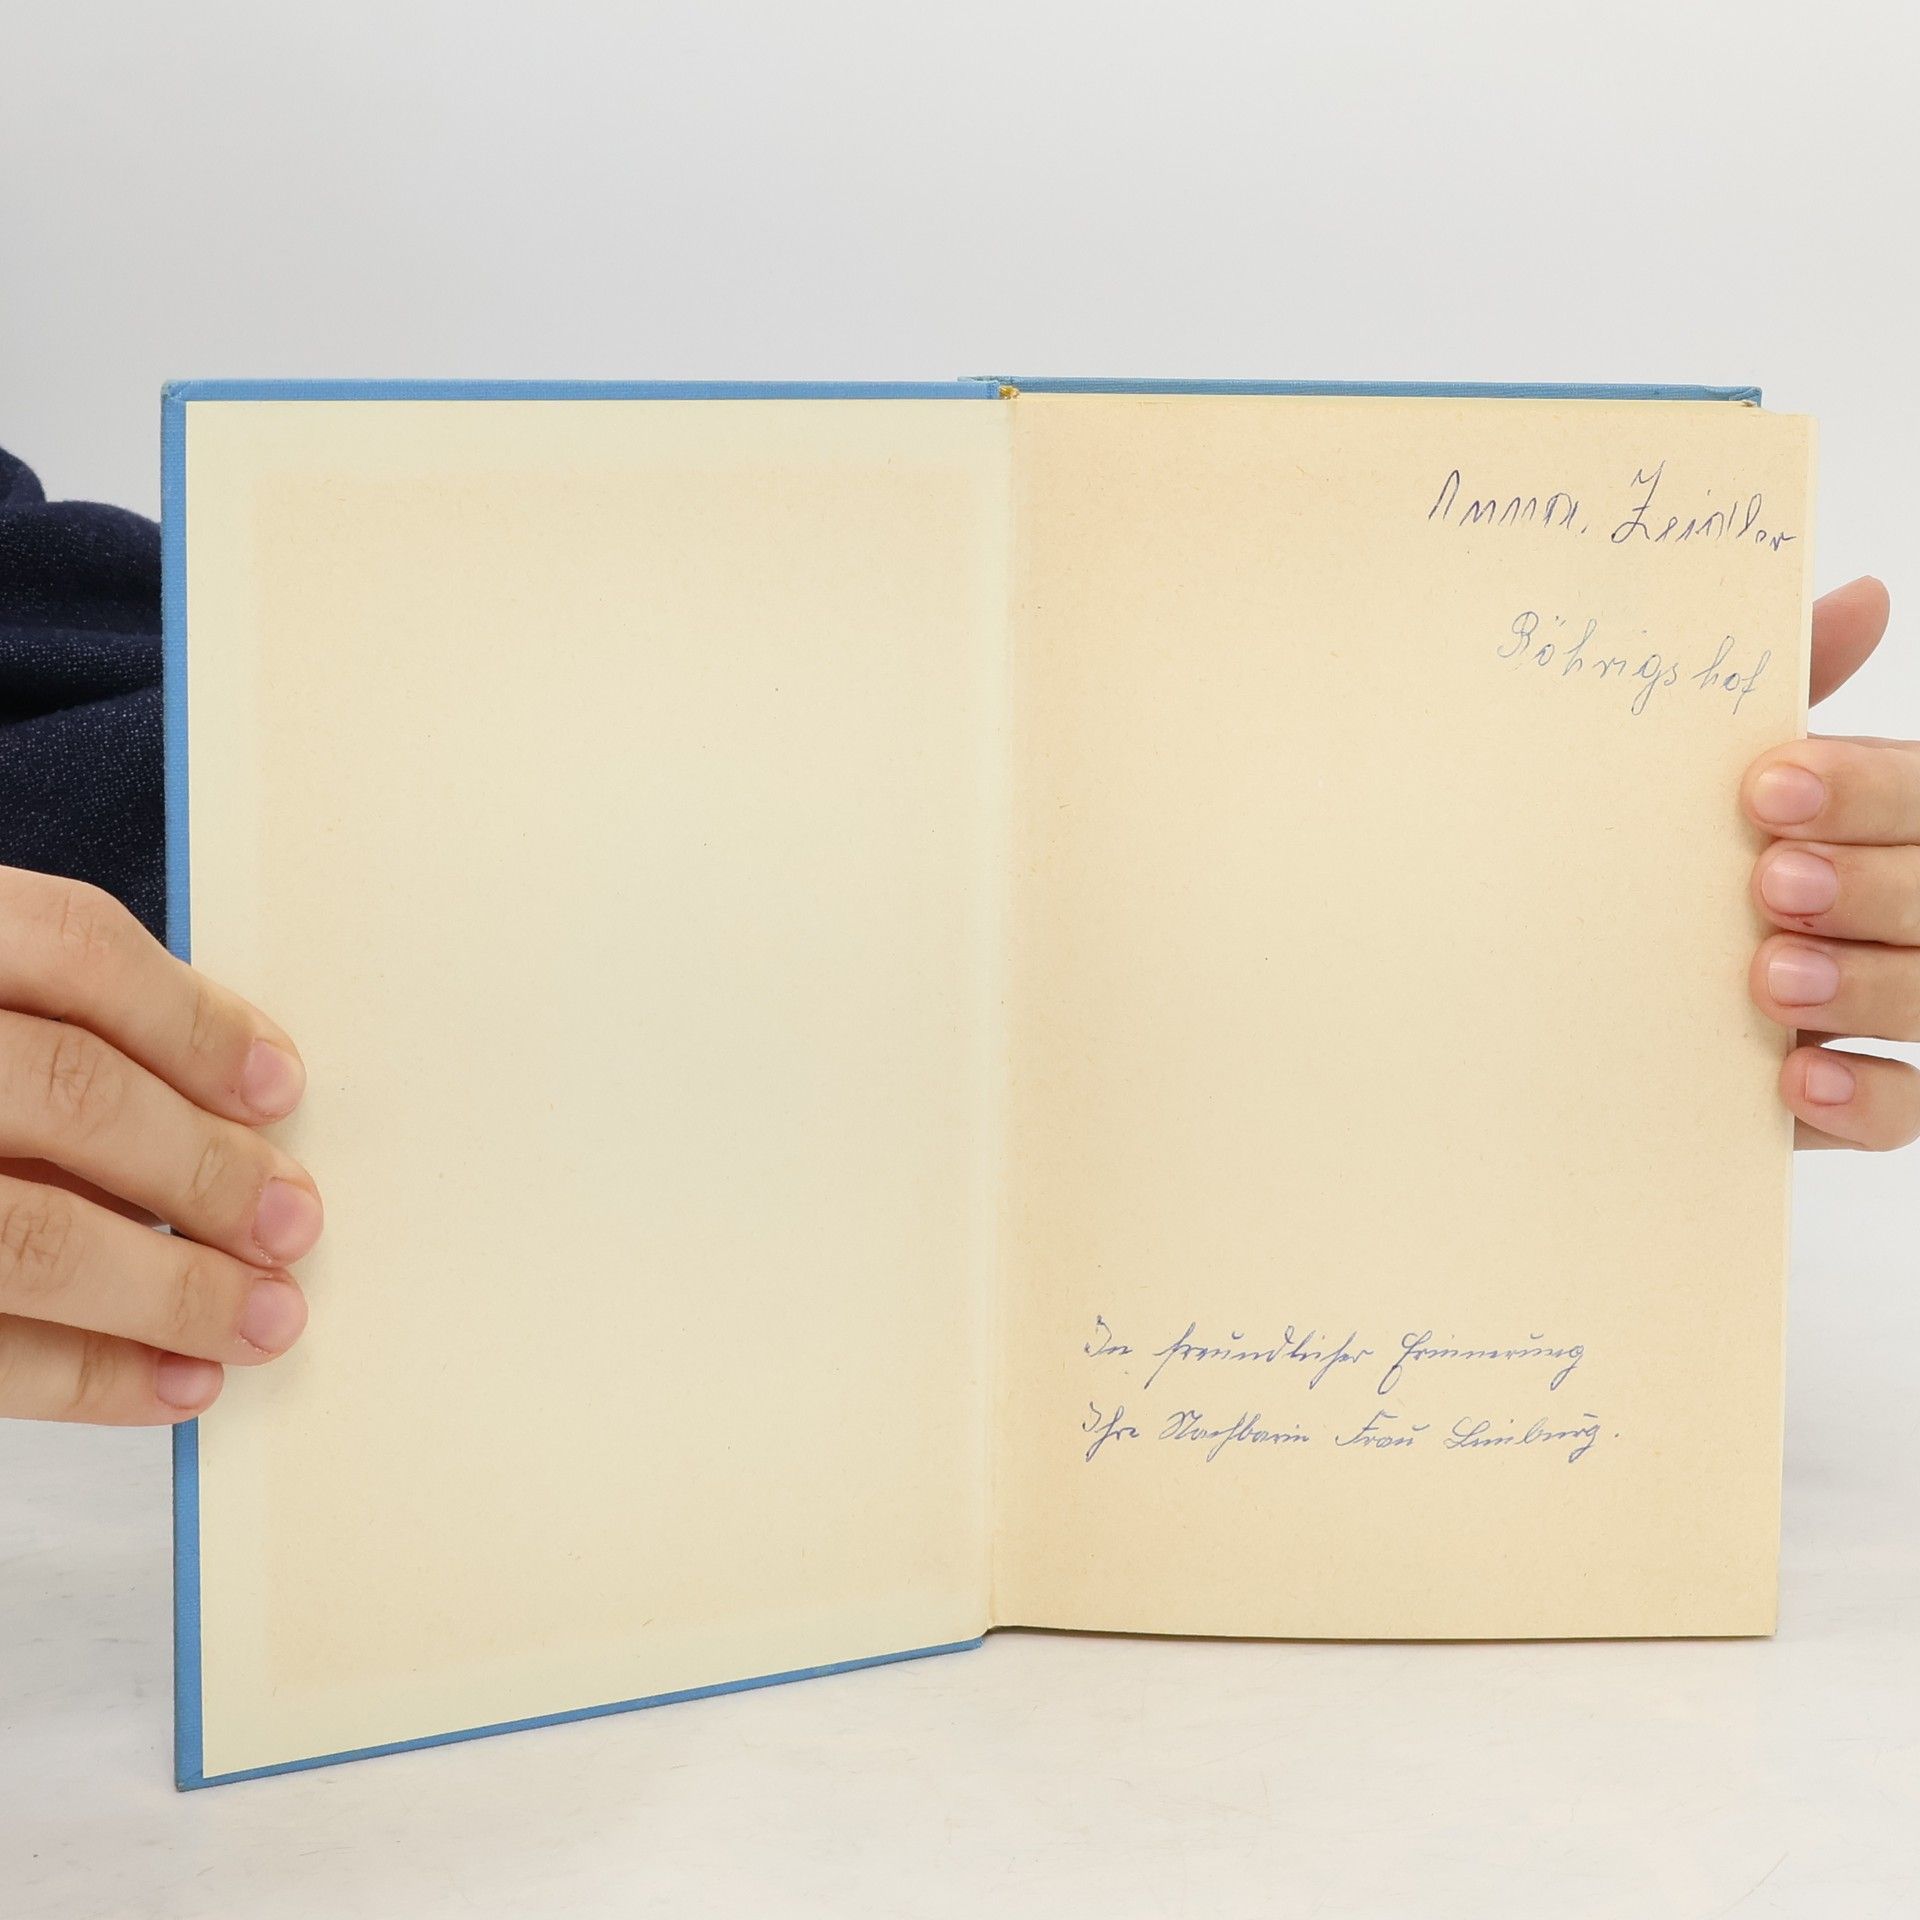 Anna. Zeidler
Röhrigshof
In freundlicher Erinnerung
Ihre Nachbarin Frau Limburg.